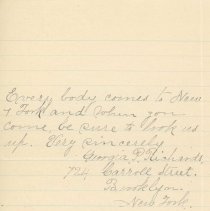 Every body comes to New
York and when you
come, be sure to look us
up. Very sincerely
Georgia P. Richards,
724 Carroll Street.
Brooklyn.
New York.